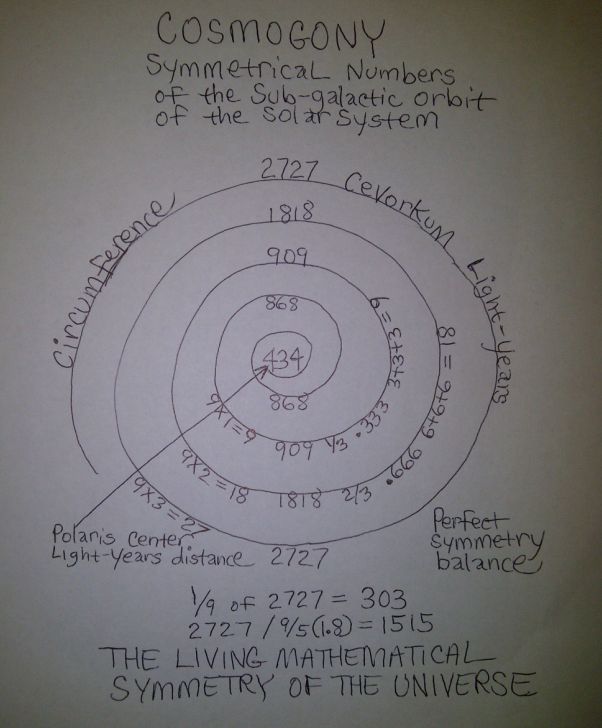 COSMOGONY
Symmetrical Numbers
of the Sub-galactic orbit
of the Solar System
2727
Circumference
Cevorkum Light-years
1818
909
868
434
868
9X1=9
909 1/3 .333 3+3+3 = 9
9X2=18
1818 2/3 .666 6+6+6 = 18
9X3=27
2727
Polaris Center
Light-Years distance
Perfect
Symmetry
balance
1/9 of 2727 = 303
2727 / 9/5 (1.8) = 1515
THE LIVING MATHEMATICAL
SYMMETRY OF THE UNIVERSE